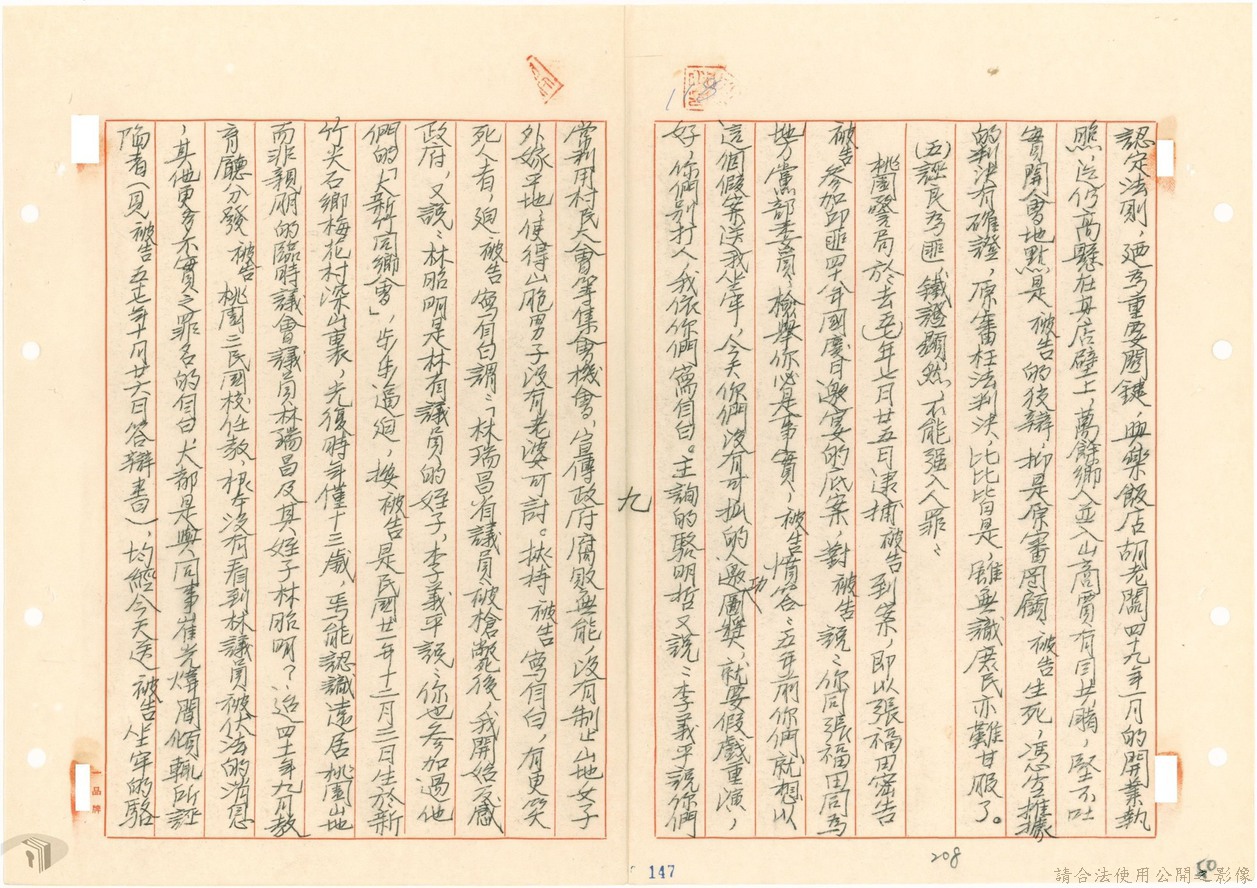 認定法則，廼為重要關鍵，與樂飯店胡老闆四十九年一月的開業執
照，迄仍高懸在其店壁上，萬餘鄉人並入山商賈有目共睹，堅不吐
實開會地點是被告的狡辯，抑是原審罔顧被告生死，憑空推據
的判決有確證，原審枉法判決，比比皆是，雖無識庶民亦難甘服了。
(五)誣民為匪，鐵證顯然，不能強入人罪：
桃園警局於去(五七)年七月廿五日逮捕被告到案，即以張福田密告
被告參加邱匪四十八年國慶日邀宴的底案，對被告說：你同張福田同為
地方黨部委員，檢舉你必是事實，被告憤答：五年前你們就想以
這個假案送我坐牢，今天你們沒有可抓的人邀功圖獎，就要假戲重演，
好，你們別打人，我依你們寫自白。主詢的駱明哲又說：李義平說你們
常利用村民大會等集會機會，宣傳政府腐敗無能，沒有制止山地女子
外嫁平地，使得山胞男子沒有老婆可討。挾持被告寫自白，有更笑
死人者，廹被告寫自白謂：「林瑞昌省議員被槍斃後，我開始反感
政府，又說：林昭明是林省議員的姪子，李義平說：你也參加過他
們的「大新竹同鄉會」，步步逼廹，按被告是民國廿一年十二月三日生於新
竹尖石鄉梅花村深山裏，光復時年僅十三歲，焉能認識遠居桃園山地
而非親朋的臨時議會議員林瑞昌及其姪子林昭明？迨四十一年九月教
育廳分發被告桃園三民國校任教，根本沒有看到林議員被伏法的消息
，其他更多不實之罪名的自白，大都是與同事崔光煒閒傾軋所誣
陷者(見被告五十七年十月廿六日答辯書)，均經今天送被告坐牢的駱
九
147
208
50
一品牌
請合法使用公開之影像